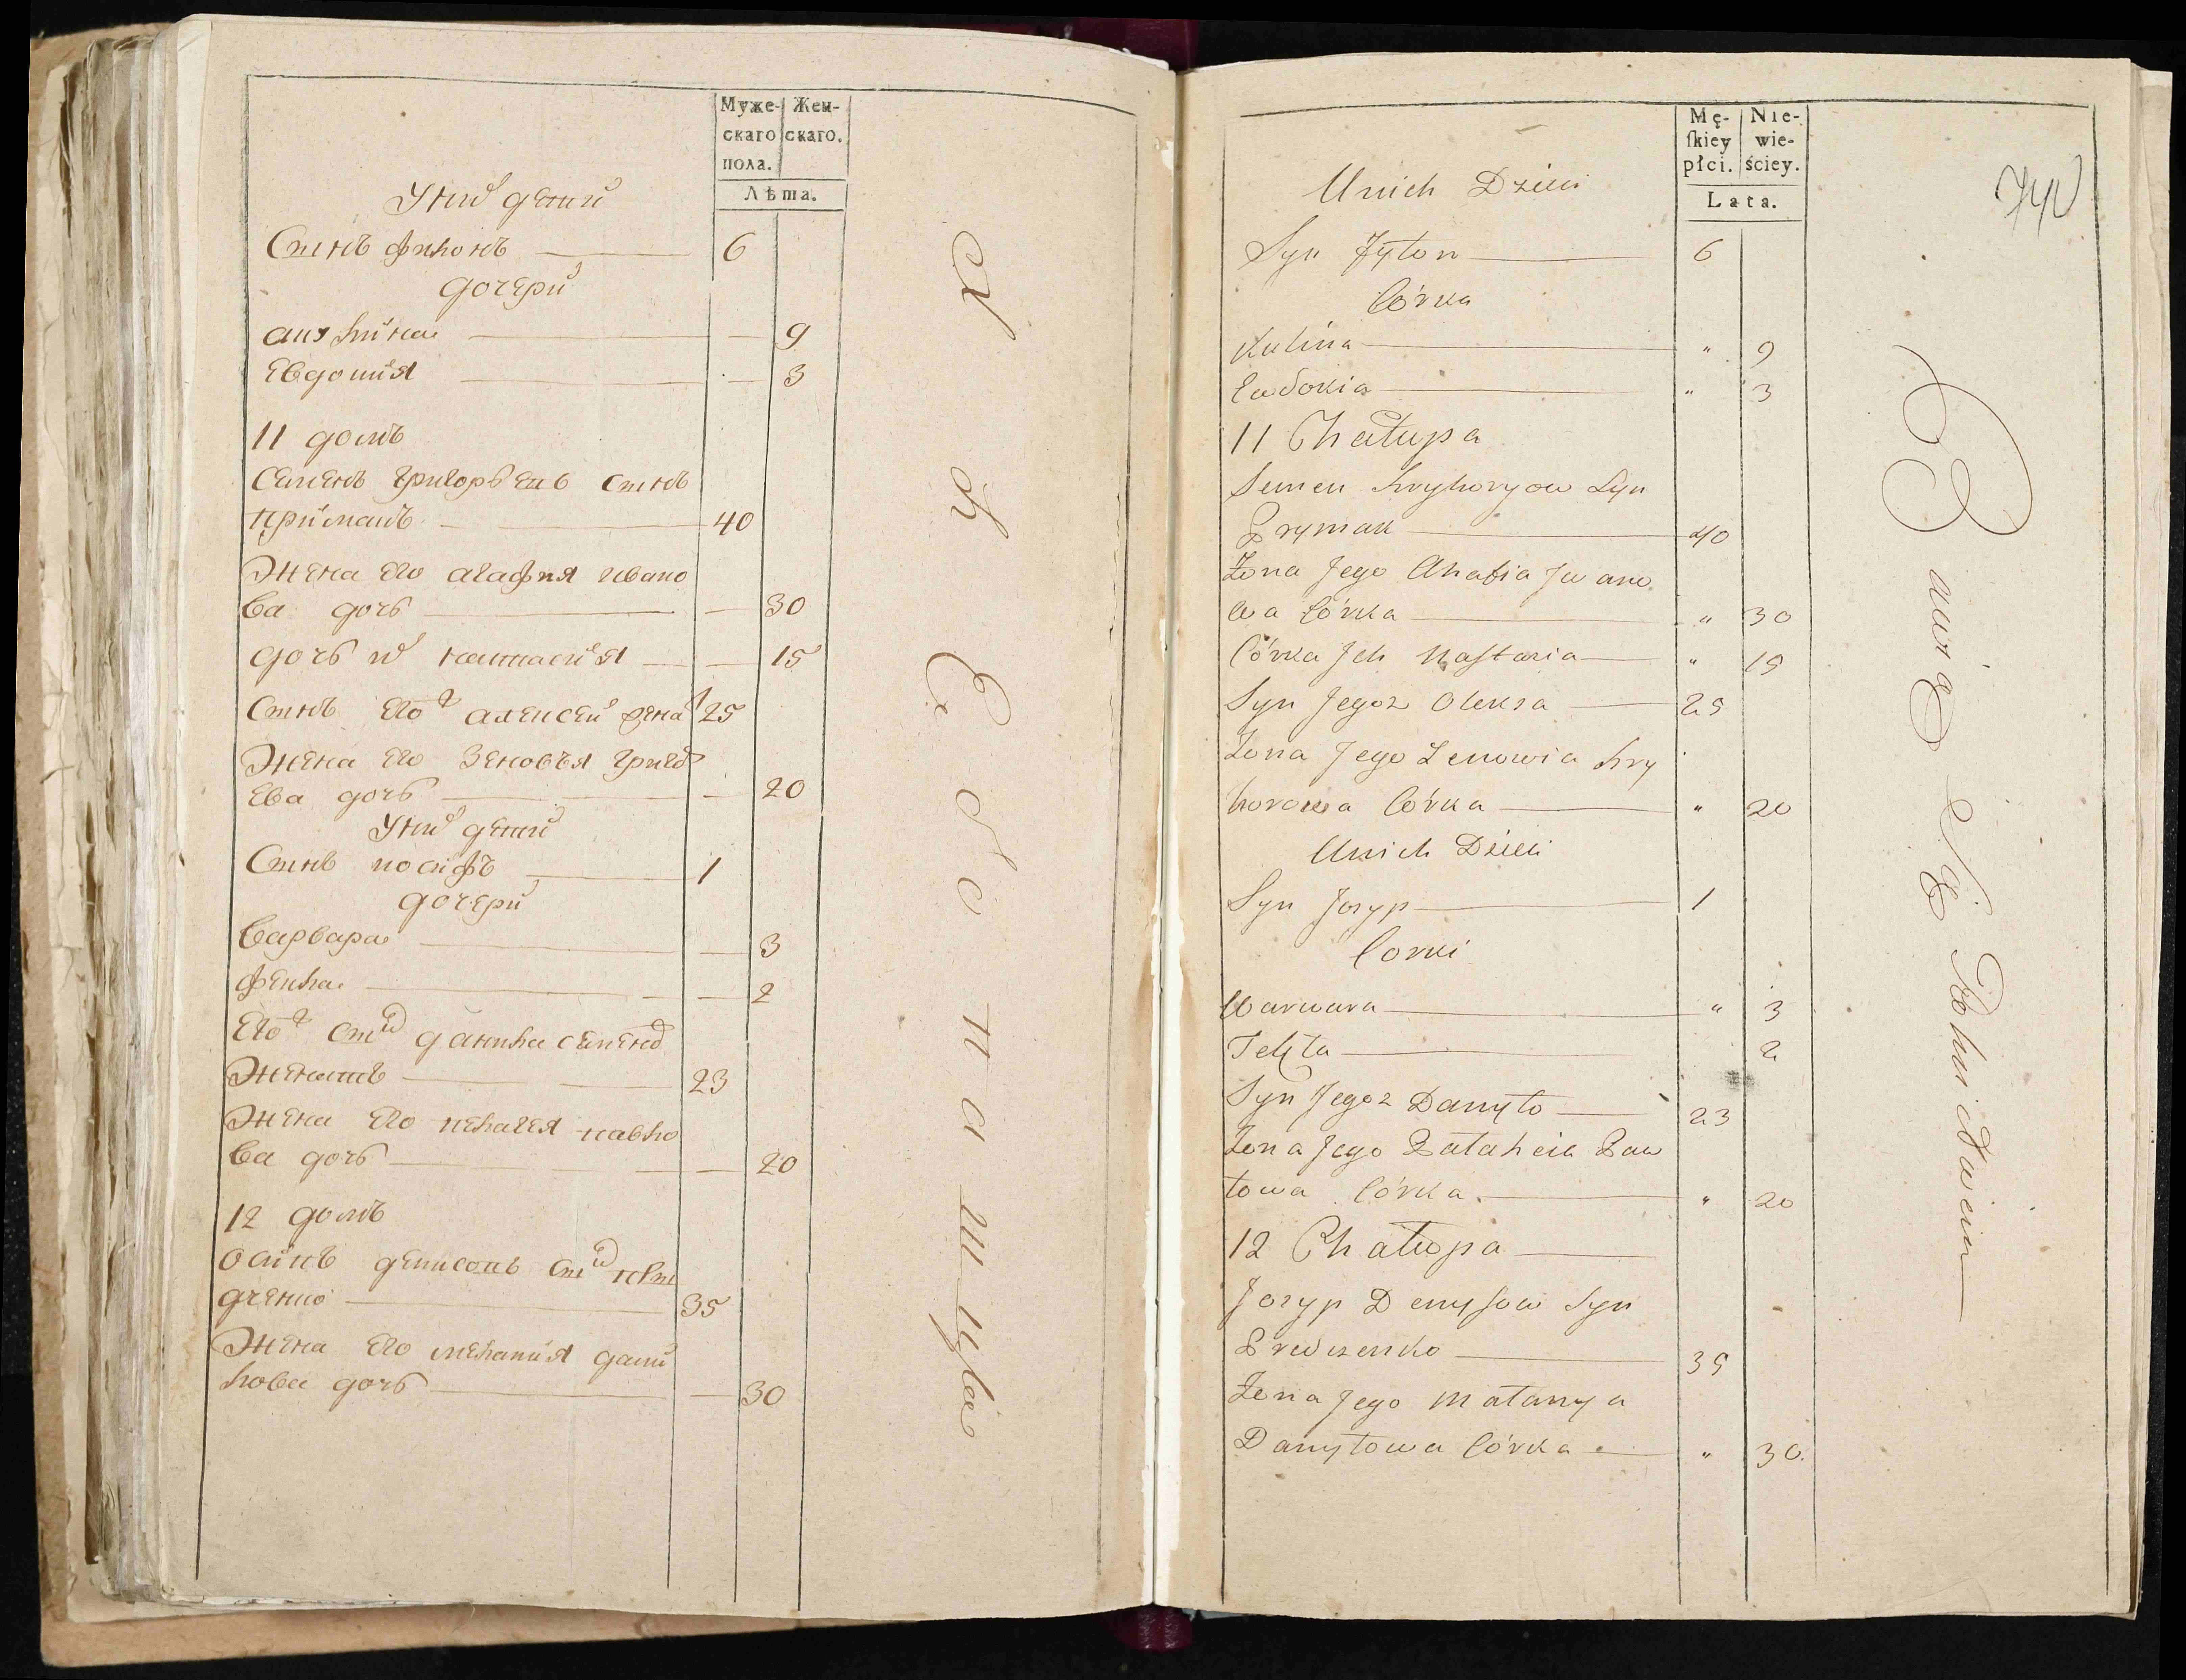 Муже-
скаго
пола.
Жен-
скаго.
Лѣта.
У них детей
Сынъ филонъ 6
дочери
акулина 9
Евдокия 3
11 домъ
Семенъ григорьевъ сынъ
примакъ 40
Жена его агафия ивано
ва дочь 30
дочь их настасия 15
Сынъ его ж алексей жена 25
Жена его зеновья григор
ева дочь 20
У них детей
Сынъ иосифъ 1
дочери
варвара 3
фекла 2
Его ж сын данила семенов
женатъ 23
Жена его пелагея павло
ва дочь 20
12 домъ
осипъ денисовъ сын
дченко 35
Жена его мелания дани
лова дочь 30
Mę-
ſkiey
płci.
Nie-
wie-
ściey.
Lata.
Unich Dzieci
Syn Fyłon 6
Córka
Kulina " 9
Ewdokia " 3
11 Chałupa
Semen Hryhoryow Syn
Prymak 40
Żona Jego Ahafia Iwano
wa Córka " 30
Córka Ich Naſtazia " 15
Syn Jegoż Olexa 25
Żona Jego Zenowia Hry
horowa Córka " 20
Unich Dzieci
Syn Jozyp 1
Corki
Warwara " 3
Tekla 2
Syn Jegoż Danyło 23
Żona Jego Pałaheia Paw
łowa Córka. " 20
12 Chałupa
Jozyp Denyſow Syn
35
Żona Jego Małanya
Danyłowa Córka " 30.